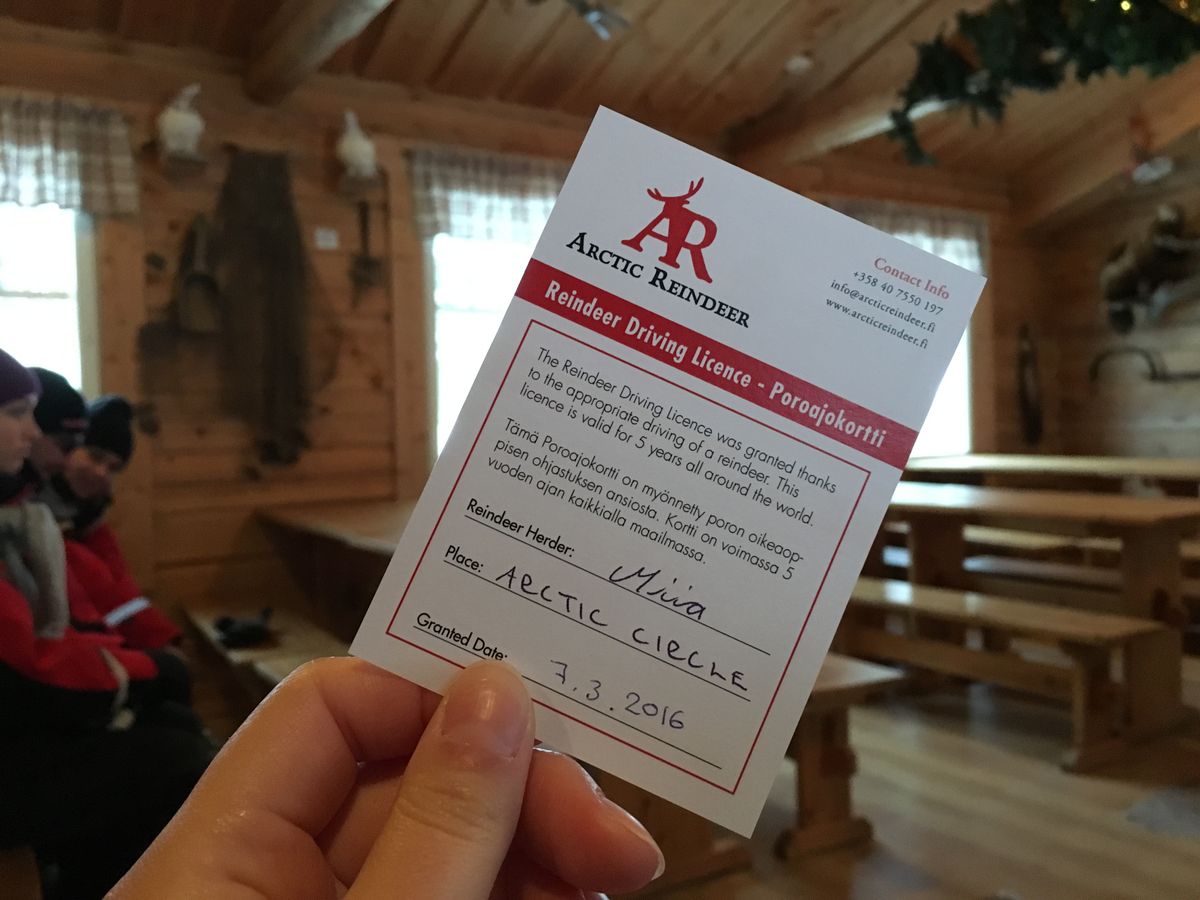 AR
ARCTIC REINDEER
Contact Info
+358 40 7550 197
info@arcticreindeer.fi
www.arcticreindeer.fi
Reindeer Driving Licence - Poroajokortti
The Reindeer Driving Licence was granted thanks
to the appropriate driving of a reindeer. This
licence is valid for 5 years all around the world.
Tämä Poroajokortti on myönnetty poron oikeaop-
pisen ohjastuksen ansiosta. Kortti on voimassa 5
vuoden ajan kaikkialla maailmassa.
Reindeer Herder: Miia
Place: ARCTIC CIRCLE
Granted Date: 7.3.2016